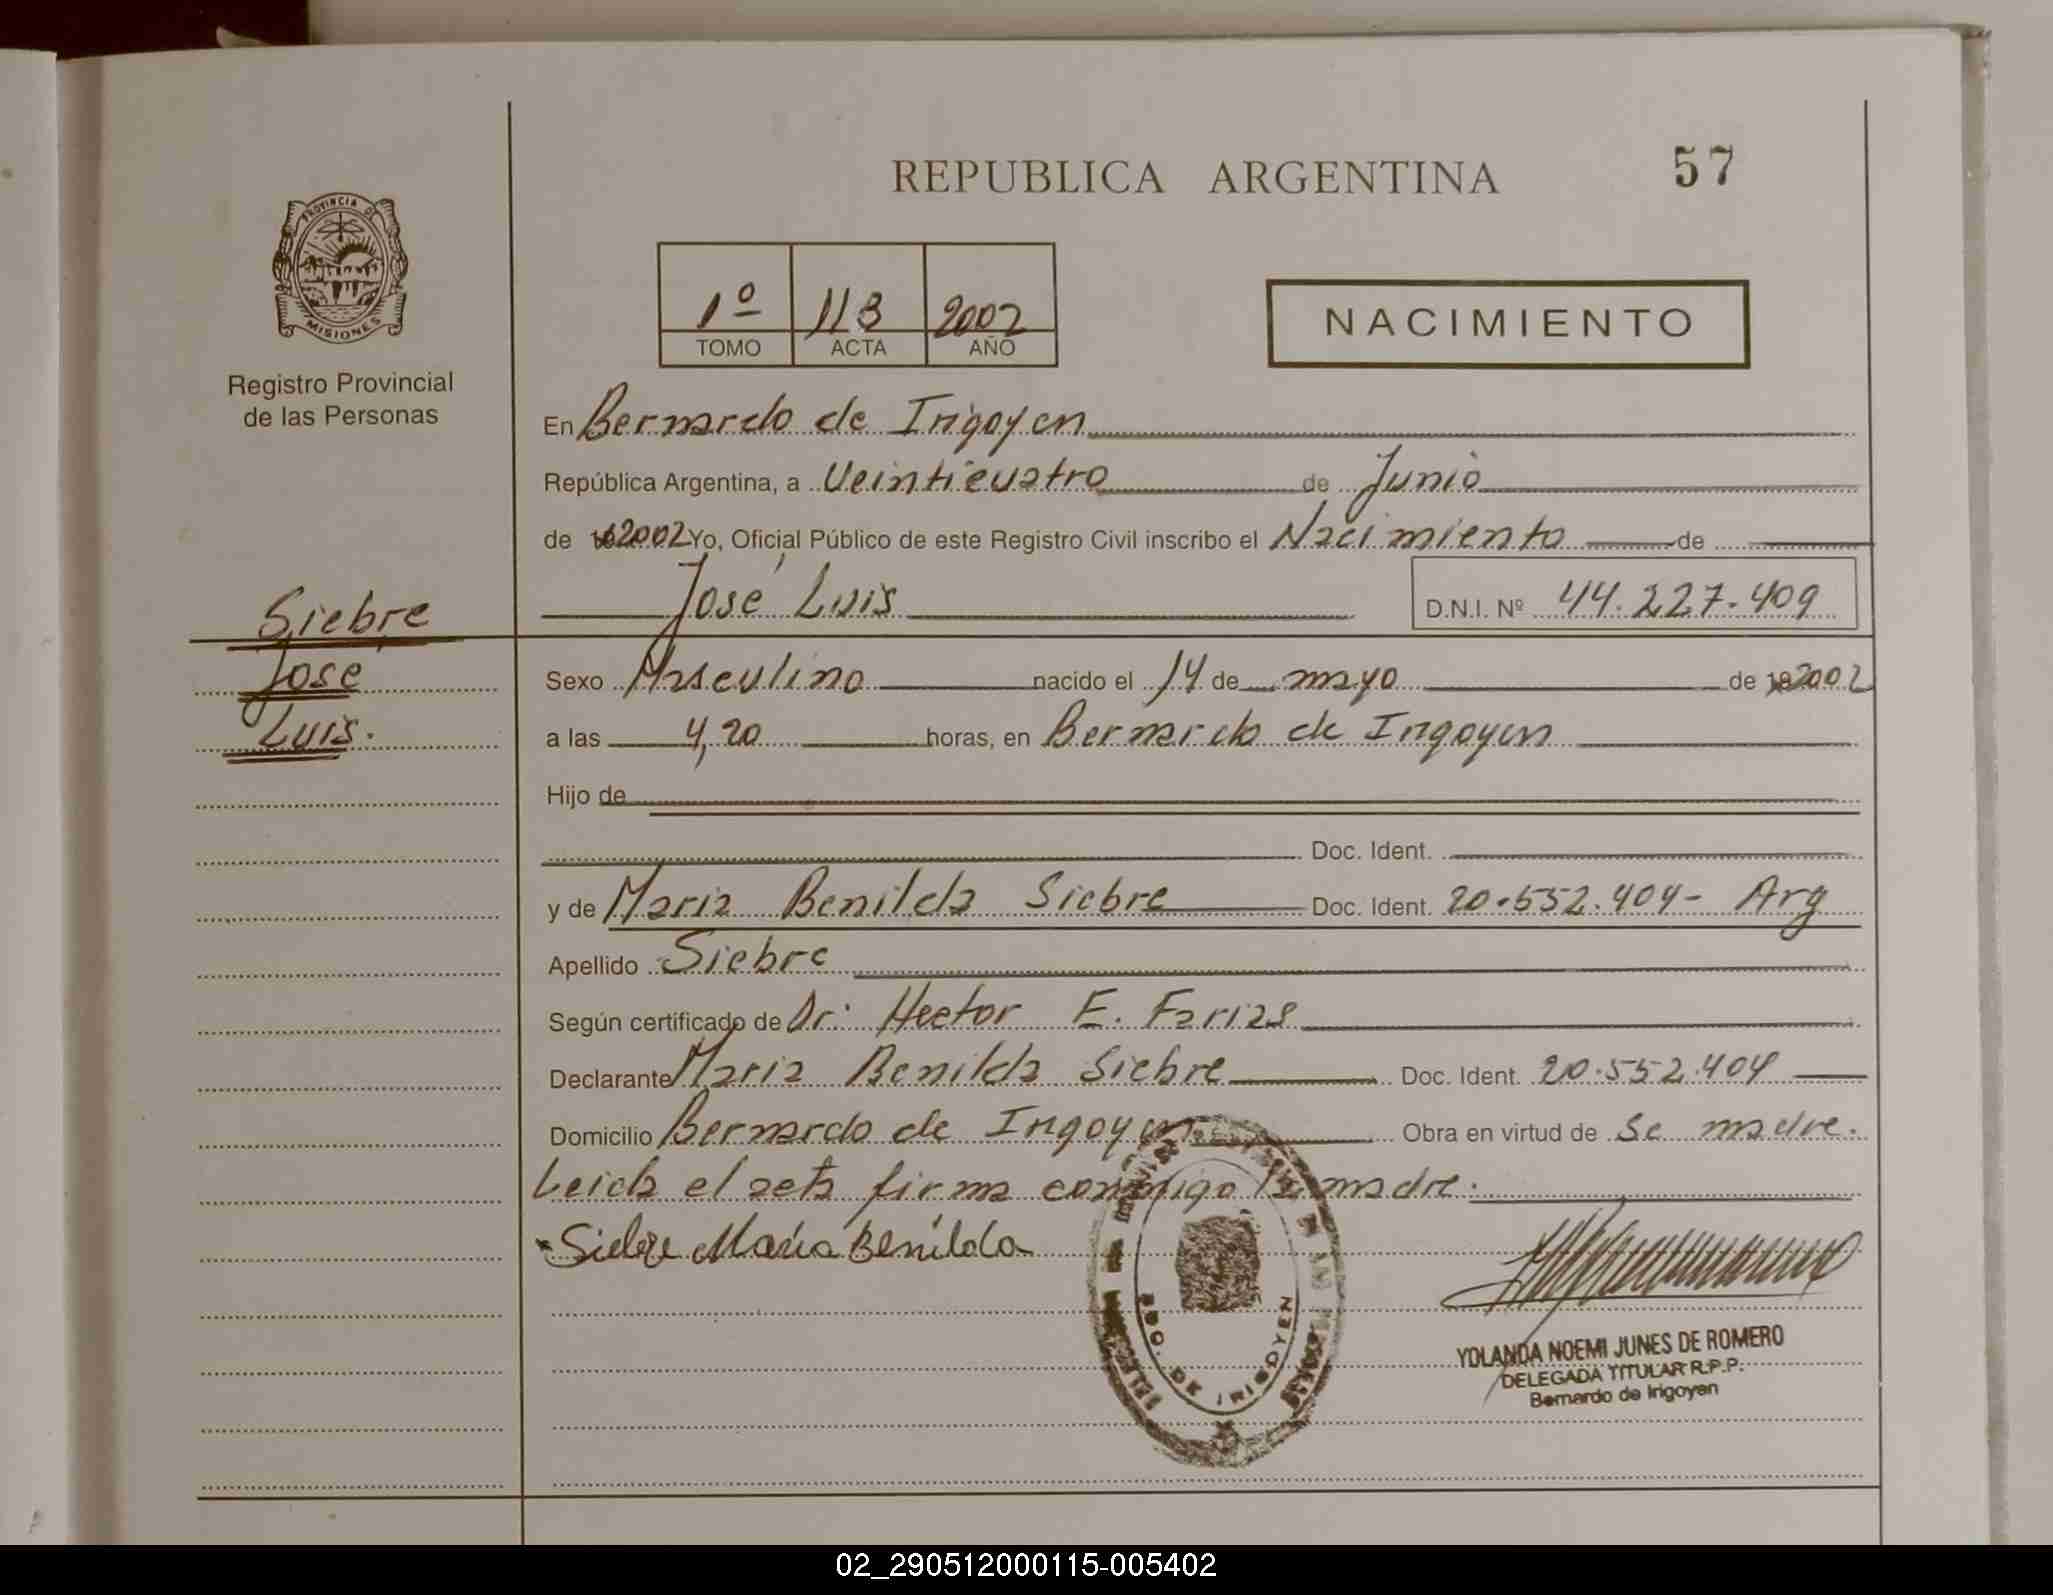 REPUBLICA ARGENTINA
57
PROVINCIA DE
MISIONES
Registro Provincial
de las Personas
1º 113 2002
TOMO ACTA AÑO
NACIMIENTO
En Bernardo de Irigoyen
República Argentina, a Veinticuatro de Junio
de 2002 Yo, Oficial Público de este Registro Civil inscribo el Nacimiento de
José Luis D.N.I. Nº 44.227.409
Siebre
José
Luis.
Sexo Masculino nacido el 14 de mayo de 2002
a las 4,20 horas, en Bernardo de Irigoyen
Hijo de
Doc. Ident.
y de Maria Benilda Siebre Doc. Ident. 20.552.404- Arg
Apellido Siebre
Según certificado de Dr: Hector E. Farias
Declarante Maria Benilda Siebre Doc. Ident. 20.552.404
Domicilio Bernardo de Irigoyen Obra en virtud de Se madre.
Leida el acta firma conmigo la madre.
Siebre Maria Benilda
BDO. DE IRIGOYEN
YOLANDA NOEMI JUNES DE ROMERO
DELEGADA TITULAR R.P.P.
Bernardo de Irigoyen
02_290512000115-005402